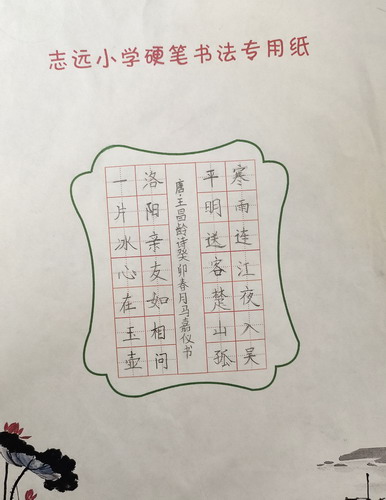 志远小学硬笔书法专用纸
寒雨连江夜入吴
平明送客楚山孤
洛阳亲友如相问
一片冰心在玉壶
唐·王昌龄诗癸卯春月马嘉仪书